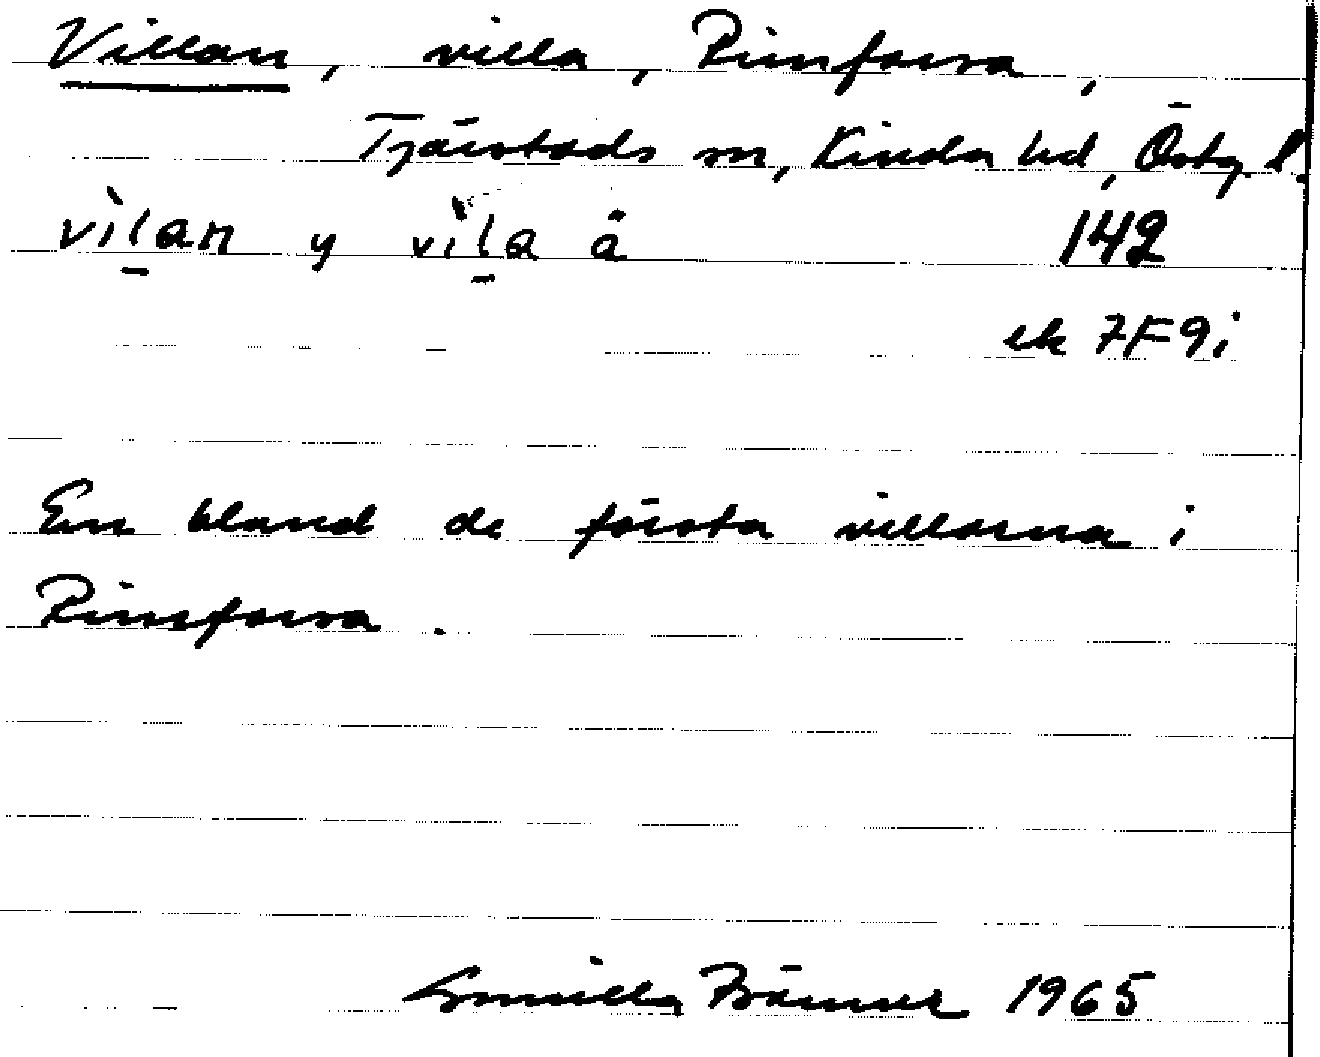 Villan, villa, Rimforsa,
Tjärstads sn, Kinda hd, Östg. l.
vìl̠an y vìl̠a ä 142
ek 7F9i
En bland de första villorna i
Rimforsa.
Gunilla 1965